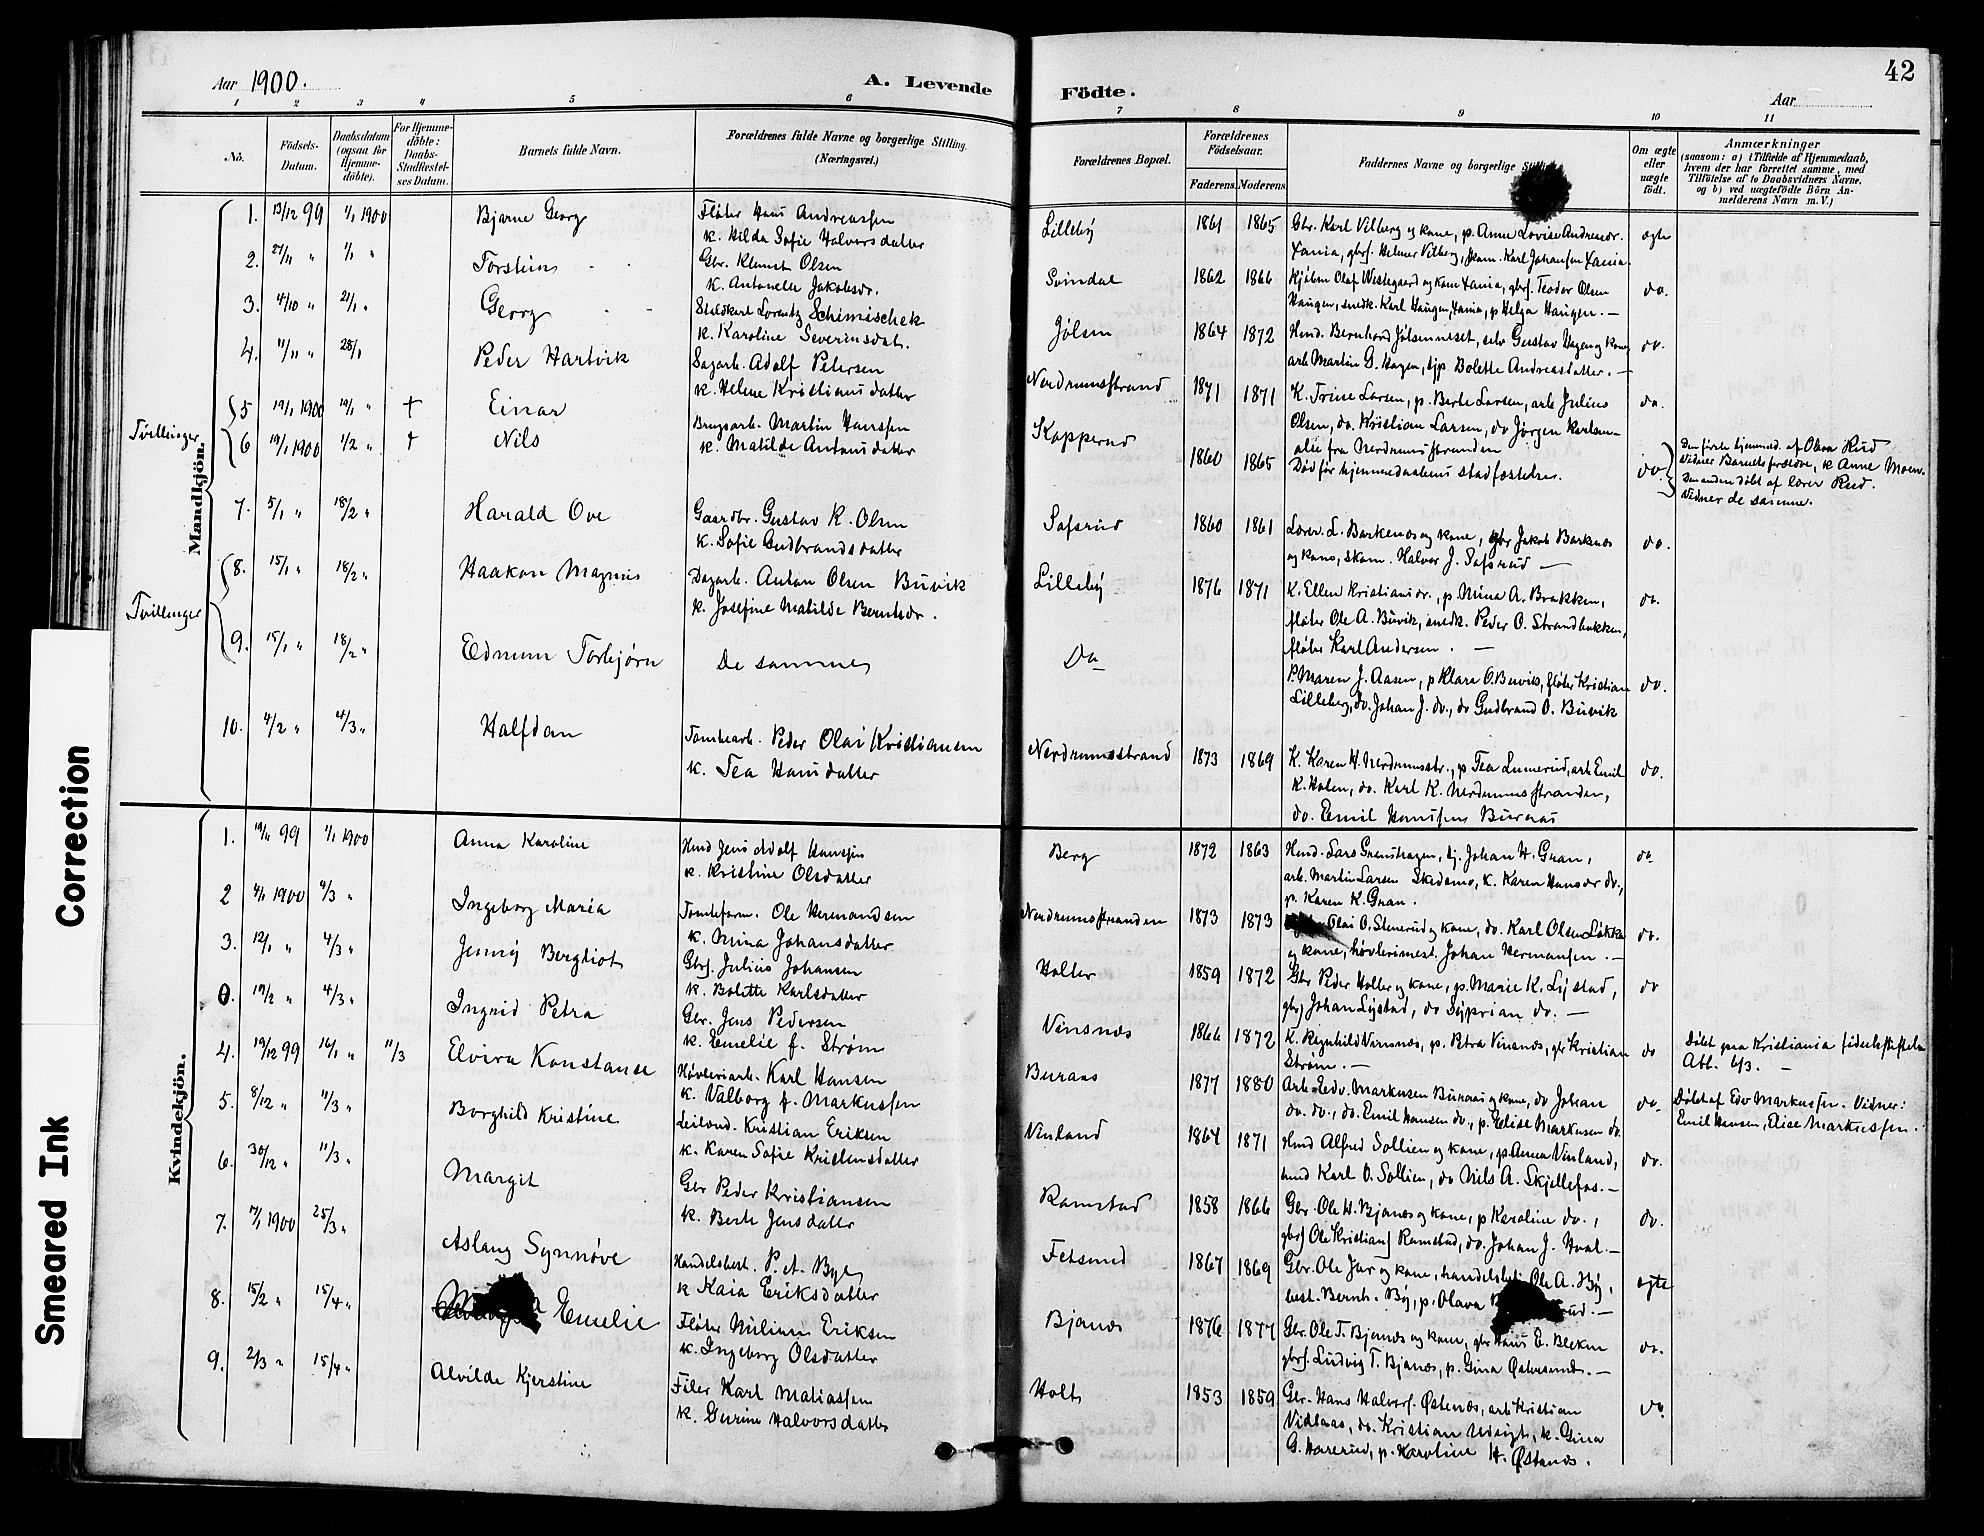 42
Aar 1900.
A. Levende Födte.
Aar
1 2 3 4 5 6 7 8 9 10 11
No.
Födsels-Datum.
Daabsdatum (ogsaa for Hjemme-döbte).
For Hjemme-döbte: Daabs-Stadfæstel-ses Datum.
Barnets fulde Navn.
Forældrenes fulde Navne og borgerlige Stilling. (Næringsvei.)
Forældrenes Bopæl.
Forældrenes Födselsaar.
Faderens. Moderens.
Faddernes Navne og borgerlige
Om ægte eller uægte födt.
Anmærkninger
(saasom: a) i Tilfælde af Hjemmedaab,
hvem der har forrettet samme, med
Tilföielse af to Daabsvidners Navne,
og b) ved uægtefödte Börn An-
melderens Navn m. V.)
Mandkjön.
1. 13/12 99 1/1 1900 Bjarne Georg
Fløter Hans Andreassen
k. Hilda Sofie Halvorsdatter
Lilleby 1861 1865
Gbr. Karl Vilberg og kone, p. Anne Lovise Andreasdr.
ægte
2. 27/11 " 1/1 " Torstein
Gbr. Klemet Olsen
k. Antonette Jakobsdr.
Svindal 1862 1866
Haugen, snedk. Karl Haugen, p Helga Haugen. —
do.
3. 4/10 " 21/1 " Georg
Staldkarl Lorentz Schimischek
k. Karoline Severinsdat.
Jølsen 1864 1872
arb Martin G. Hagen, tjp Bolette Andreasdatter. —
do.
4. 11/11 " 28/1 Peder Hartvik
Sagarb. Adolf Petersen
k. Helene Kristiansdatter
Nerdrumsstrand 1871 1871
K. Trine Larsen, p. Berte Larsen, arb Julius
Olsen, do. Kristian Larsen, do Jørgen
alle fra Nerdrumsstranden
do.
Tvillinger
5 19/1 1900 19/1 " + Einar
6 19/1 1900 1/2 " + Nils
Brugsarb. Martin Hanssen
k. Matilde Antonsdatter
Kopperud 1860 1865
Død før hjemmedaabens stadfæstelse.
do.
Den første hjemmed. af Olava Rud
Vidner Barnets forældre, k Anne Moen.
Den anden døbt af lærer Rud.
Vidner de samme.
7. 5/1 " 18/2 " Harald Ove
Gaardbr. Gustav K. Olsen
k. Sofie Gudbrandsdatter
Safsrud 1860 1861
Lærer L. Barkenæs og kone, gbr Jakob Barknæs
og kone, skom. Halvor J. Safsrud —
do.
Tvillinger
8. 15/1 " 18/2 " Haakon Magnus
Dagarb. Anton Olsen Buvik
k. Josefine Matilde Berntsdr.
Lilleby 1876 1871
K. Ellen Kristiansdr., p. Mina A. Brakken,
fløter Ole A. Buvik, snedk. Peder O. Strandbakken,
fløter Karl Andersen. —
do.
9. 15/1 " 18/2 " Edmun Torbjørn
De samme
Do
P. Maren J. Aasen, p Klara O. Buvik, fløter Kristian
Lilleberg, do. Johan J. do., do Gudbrand O. Buvik
do.
10. 4/2 " 4/3 " Halfdan
Tomtearb. Peder Olai Kristiansen
k. Tea Hansdatter
Nerdrumsstrand 1873 1869
K. Karen H. Nerdrumsstr., p Tea Lunerud, arb Emil
K. Holen, do. Karl K. Nerdrumsstranden,
do. Emil Hanssen Buraas
do.
Kvindekjön.
1. 19/11 99 1/1 1900 Anna Karoline
Hmd Jens Adolf Hanssen
k. Kristine Olsdatter
Berg 1872 1863
Hmd. Lars Granshagen, tj. Johan H. Gran,
arb. Martin Larsen Skedsmo, k. Karen Hansdr do.,
p. Karen K. Gran.
do
2 4/1 1900 4/3 " Ingeborg Maria
Tomteform. Ole Hermandsen
k. Mina Johansdatter
Nerdrumsstranden 1873 1873
Olai O. Stenerud og kone, do. Karl Olsen Løkke
og kone, høvlerimest. Johan Hermansen. —
do.
3. 12/1 " 4/3 " Jenny Bergliot
Gbrs. Julius Johansen
k. Bolette Karlsdatter
Holter 1859 1872
Gbr Peder Holter og kone, p. Marie K. Lystad,
gbrs Johan Lystad, do Syprian do. —
do
0. 19/2 " 4/3 " Ingrid Petra
Gbr. Jens Pedersen
k. Emelie f. Strøm
Vinsnæs 1866 1872
K. Ragnhild Vinsnæs, p. Petra Vinsnæs, gbr Kristian
Strøm. —
do
4. 19/12 99 16/1 " 11/3 Elvira Konstanse
Høvleriarb. Karl Hansen
k. Valborg f. Markussen
Buraas 1877 1880
Arb. Edv. Markusen Buraas og kone, do Johan
do. do., do. Emil Hansen do., p. Elise Markusen do.
do.
Døbt paa Kristiania fødselsstiftelse
Att. 6/3. —
5. 8/12 " 11/3 " Borghild Kristine
Leilænd. Kristian Eriksen
k. Karen Sofie Kristensdatter
Vinland 1864 1871
Hmd Alfred Sollien og kone, p. Anna Vinland,
hmd Karl O. Sollien, do Nils A. Skjellefos. —
do.
Døbt af Edv Markussen. Vidner:
Emil Hansen, Elise Markussen.
6. 30/12 " 11/3 " Margit
Gbr Peder Kristiansen
k. Berte Jensdatter
Ramstad 1858 1866
Gbr. Ole H. Bjanæs og kone, p Karoline do.,
gbrs Ole Kristians Ramstad, do. Johan J. Hval. —
do.
7. 17/1 1900 25/3 " Aslaug Synnøve
Handelsbest. P. A. Bye
k Kaia Eriksdatter
Fetsund 1867 1869
Gbr. Ole Jar og kone, handelsbetj. Ole A. By,
best. Bernh. By, p. Olava
ægte
8. 15/2 " 15/4 " Emelie
Fløter Milian Eriksen
k. Ingeborg Olsdatter
Bjanæs 1876 1877
Gbr. Ole T. Bjanæs og kone, gbr Hans E. Bleken
gbrs. Ludvig T. Bjanæs, p. Gina Østersnæs. —
do.
9. 2/3 " 15/4 " Alvilde Kjerstine
Filer Karl Matiassen
k. Gurine Halvorsdatter
Holt 1853 1859
Gbr. Hans Halvors. Østenæs, arb Kristian
do. Kristian Udsigt, k. Gina
G. Harerud, p. Karoline H. Østanæs.
do.
Smeared Ink Correction